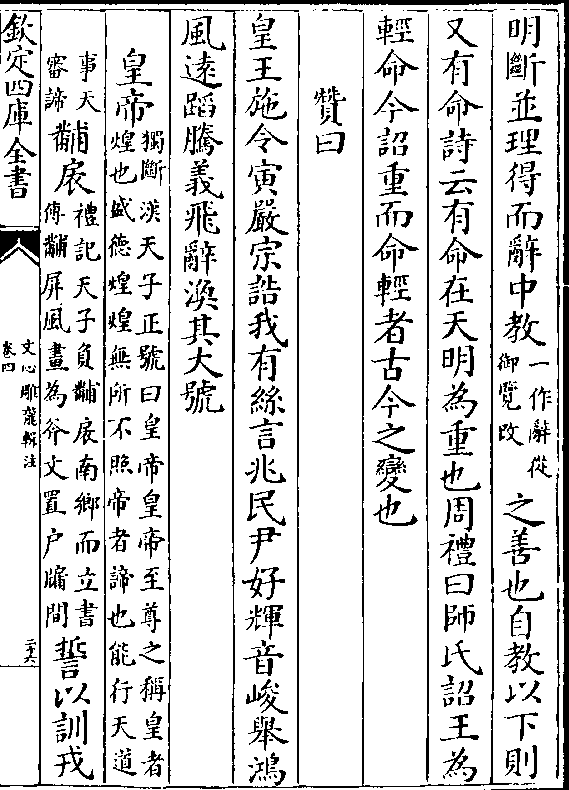 明斷並理得而辭中教一作辭從御覽改之善也自教以下則
又有命詩云有命在天明為重也周禮曰師氏詔王為
輕命今詔重而命輕者古今之變也
贊曰
皇王施令寅嚴宗誥我有絲言兆民尹好輝音峻舉鴻
風遠蹈騰義飛辭渙其大號
皇帝獨斷漢天子正號曰皇帝皇帝至尊之稱皇者
煌也盛德煌煌無所不照帝者諦也能行天道
事天審諦黼扆禮記天子負黼扆南鄉而立書
傳黼屏風畫為斧文置户牖間誓以訓戎
欽定四庫全書
文心雕龍輯注
卷四
二十六